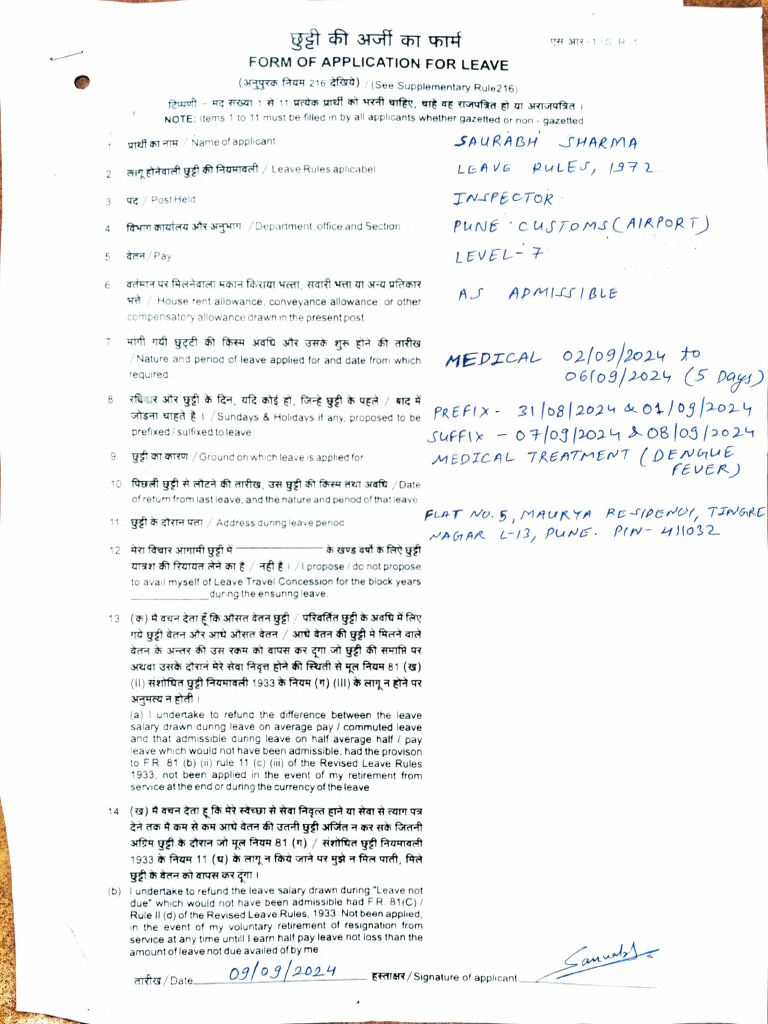 छुट्टी की अर्जी का फार्म
एस आर-1/S.R-1
FORM OF APPLICATION FOR LEAVE
(अनुपुरक नियम 216 देखिये) / (See Supplementary Rule216)
टिप्पणी - मद संख्या 1 से 11 प्रत्येक प्रार्थी को भरनी चाहिए, चाहे वह राजपत्रित हो या अराजपत्रित ।
NOTE: Items 1 to 11 must be filled in by all applicants whether gazetted or non - gazetted
1 प्रार्थी का नाम / Name of applicant SAURABH SHARMA
2 लागू होनेवाली छुट्टी की नियमावली / Leave Rules aplicabel LEAVE RULES, 1972
3 पद / Post Held INSPECTOR
4 विभाग कार्यालय और अनुभाग / Department, office and Section PUNE CUSTOMS (AIRPORT)
5 वेतन / Pay LEVEL-7
6 वर्तमान पर मिलनेवाला मकान किराया भत्ता, सवारी भत्ता या अन्य प्रतिकार
भत्ते / House rent allowance, conveyance allowance, or other AS ADMISSIBLE
compensatory allowance drawn in the present post
7 मांगी गयी छुट्टी की किस्म अवधि और उसके शुरू होने की तारीख
/Nature and period of leave applied for and date from which MEDICAL 02/09/2024 to
required 06/09/2024 (5 Days)
8. रविवार और छुट्टी के दिन, यदि कोई हो, जिन्हे छुट्टी के पहले / बाद में
जोडना चाहते है । / Sundays & Holidays if any, proposed to be PREFIX - 31/08/2024 & 01/09/2024
prefixed / sulfixed to leave SUFFIX - 07/09/2024 & 08/09/2024
9 छुट्टी का कारण / Ground on which leave is applied for MEDICAL TREATMENT (DENGUE
FEVER)
10 पिछली छुट्टी से लौटने की तारीख, उस छुट्टी की किस्म तथा अवधि / Date
of return from last leave, and the nature and period of that leave
11 छुट्टी के दौरान पता / Address during leave period FLAT NO. 5, MAURYA RESIDENCY, TINGRE
NAGAR L-13, PUNE. PIN- 411032
12 मेरा विचार आगामी छुट्टी में ____________ के खण्ड वर्षो के लिए छुट्टी
यात्रश की रियायत लेने का है / नही है । / I propose / do not propose
to avail myself of Leave Travel Concession for the block years
____________ during the ensuring leave.
13. (क) मै वचन देता हूँ कि औसत वेतन छुट्टी / परिवर्तित छुट्टी के अवधि में लिए
गये छुट्टी वेतन और आधे औसत वेतन / आधे वेतन की छुट्टी मे मिलने वाले
वेतन के अन्तर की उस रकम को वापस कर दूंगा जो छुट्टी की समाप्ति पर
अथवा उसके दौरानं मेरे सेवा निवृत्त होने की स्थिती से मूल नियम 81 (ख)
(II) संशोधित छुट्टी नियमावली 1933 के नियम (ग) (III) के लागू न होने पर
अनुमत्य न होती ।
(a) I undertake to refund the difference between the leave
salary drawn during leave on average pay / commuted leave
and that admissible during leave on half average half / pay
leave which would not have been admissible, had the provison
to F.R. 81 (b) (ii) rule 11 (c) (iii) of the Revised Leave Rules
1933, not been applied in the event of my retirement from
service at the end or during the currency of the leave
14 (ख) मै वचन देता हू कि मेरे स्वेच्छा से सेवा निवृत्त हाने या सेवा से त्याग पत्र
देने तक मै कम से कम आधे वेतन की उतनी छुट्टी अर्जित न कर सके जितनी
अग्रिम छुट्टी के दौरान जो मूल नियम 81 (ग) / संशोधित छुट्टी नियमावली
1933 के नियम 11 (ध) के लागू न किये जाने पर मुझे न मिल पाती, मिले
छुट्टी के वेतन को वापस कर दूंगा ।
(b) I undertake to refund the leave salary drawn during "Leave not
due" which would not have been admissible had F.R. 81(C) /
Rule II (d) of the Revised Leave Rules, 1933. Not been applied,
in the event of my voluntary retirement of resignation from
service at any time untill I earn half pay leave not loss than the
amount of leave not due availed of by me
तारीख / Date 09/09/2024 हस्ताक्षर / Signature of applicant